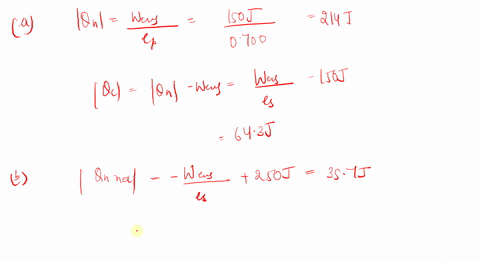 (a) |Qh| = Weng/ep = 150J/0.700 = 214J
|Qc| = |Qh| - Weng = Weng/es - 150J
= 64.3J
(b) |Qh net| = - Weng/es + 250J = 35.7J